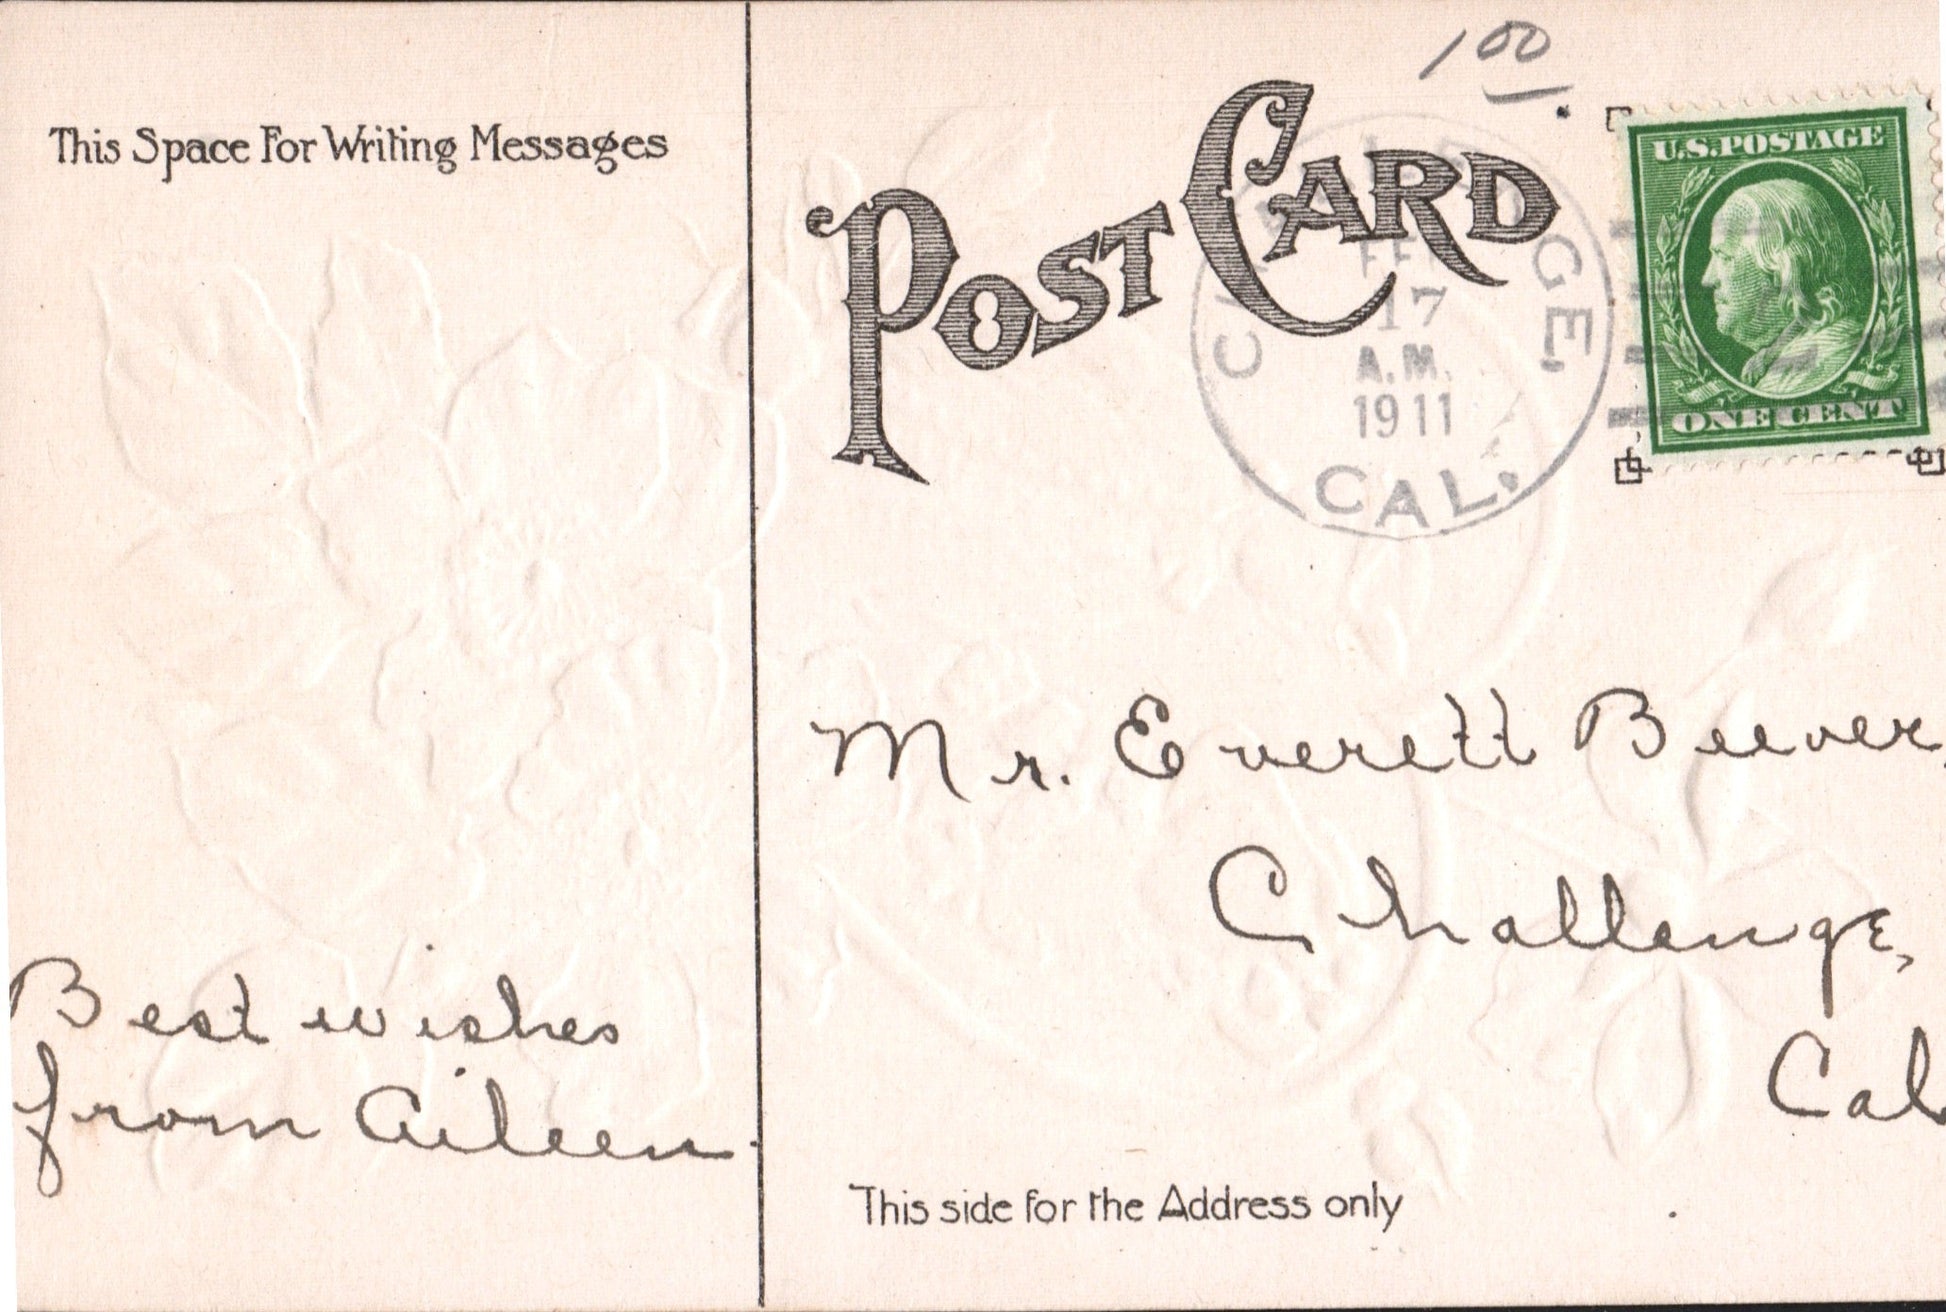 This Space For Writing Messages
Best wishes
from Aileen.
POST CARD
100
CHALLENGE,
17
A.M.
1911
CAL.
U.S. POSTAGE
ONE CENT
Mr. Everett Beever,
Challenge,
Cal
This side for the Address only